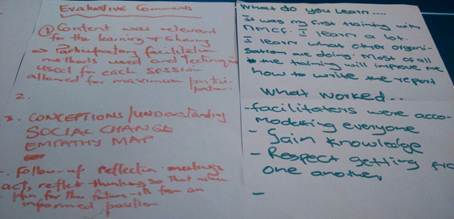 Evaluative Comments
① Content was relevant
for the learning & sharing
⇒ Participatory facilitation
methods used and techniques
used for each session
allowed for maximum partici-
pation
2.
3. CONCEPTIONS/UNDERSTANDING
SOCIAL CHANGE
EMPATHY MAP
- Follow-up reflection meetings
act, reflect thinking so that when
plan for the future its from an
informed position
What do you learn....
It was my first training with
I learn a lot.
I learn what other organi-
sation are doing. Most of all
the training will improve me
how to write the report
What worked...
- facilitators were acco-
modating everyone
- Gain knowledge
- Respect getting from
one another
-